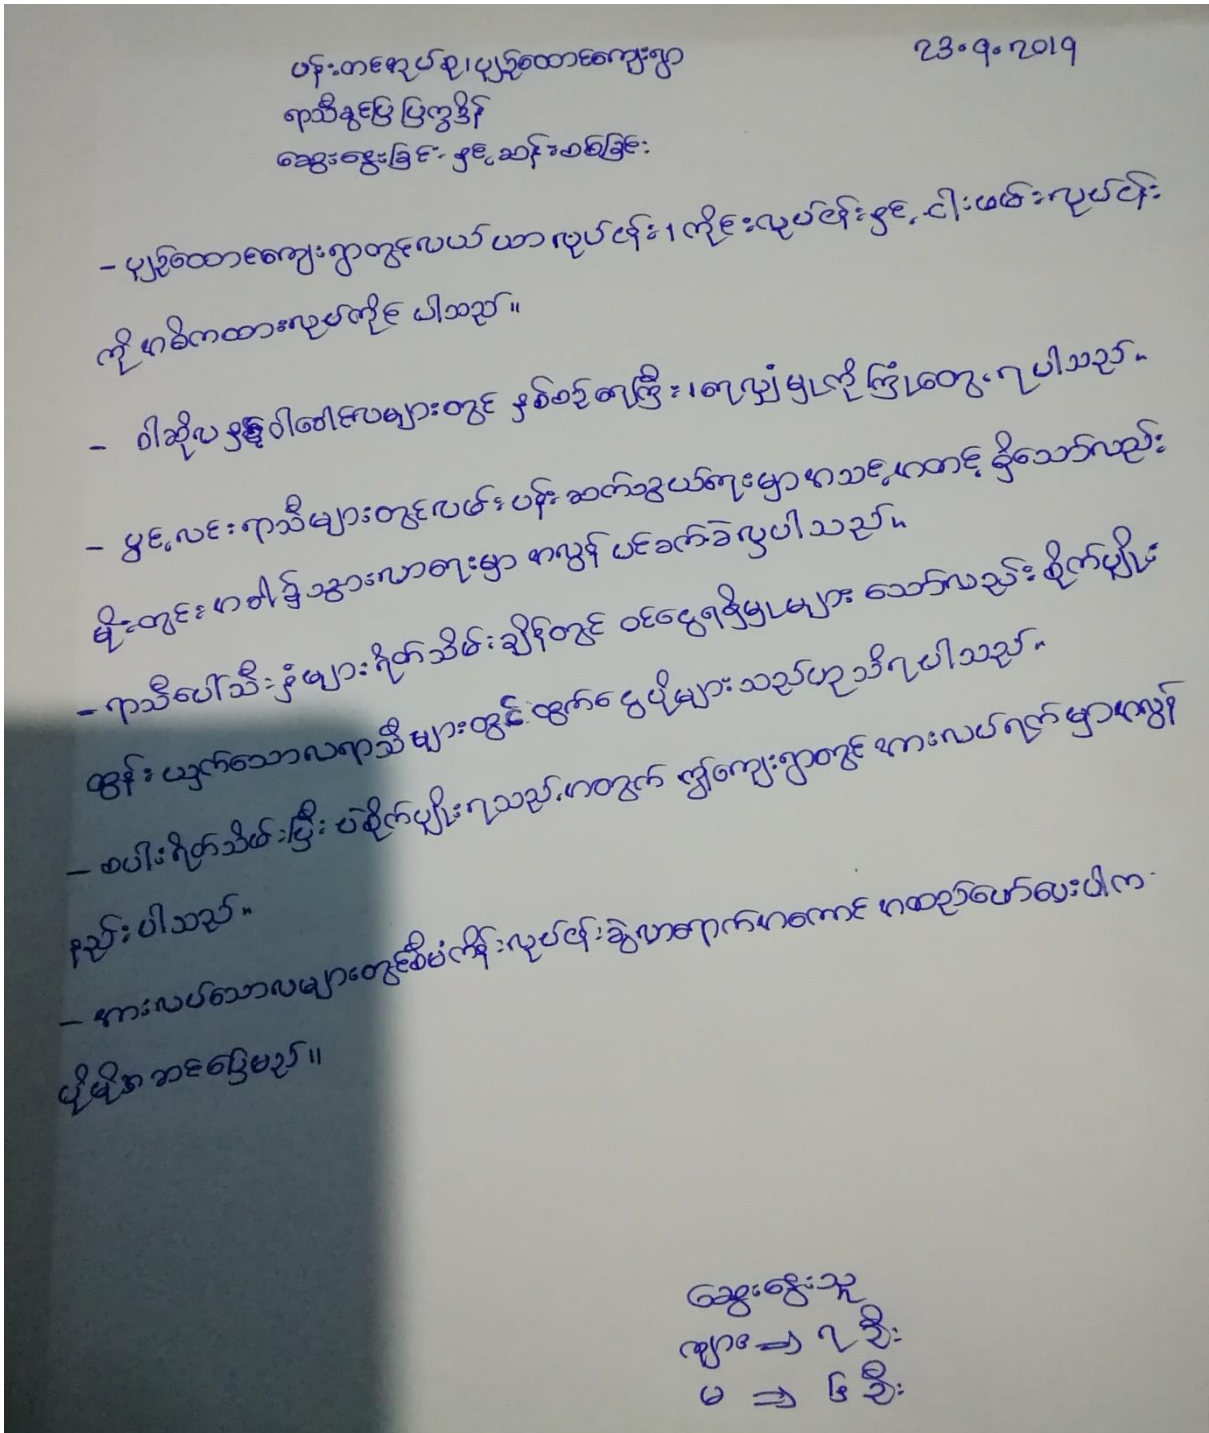 ပန်းတင်အုပ်စု၊ပျဉ်ထောင်ကျေးရွာ
23.9.2019
ရာသီခွင်ပြ ပြက္ခဒိန်
ဆွေးနွေးခြင်း နှင့် ဆန်းစစ်ခြင်း
- ပျဉ်ထောင်ကျေးရွာတွင်လယ်ယာလုပ်ငန်း၊ ကိုင်းလုပ်ငန်းနှင့် ငါးဖမ်းလုပ်ငန်း
ကို အဓိကထားလုပ်ကိုင် ပါသည်။
- ဝါဆိုလနှင့်ဝါခေါင်လများတွင် နှစ်စဉ်ရေကြီး၊ရေလျှံမှုကိုကြုံတွေ့ရပါသည်။
- ပွင့်လင်းရာသီများတွင်လမ်းပန်းဆက်သွယ်ရေးမှာအသင့်အတင့်ရှိသော်လည်း
မိုးတွင်းအခါ၌သွားလာရေးမှာ အလွန်ပင်ခက်ခဲလှပါသည်။
- ရာသီပေါ်သီးနှံများရိတ်သိမ်းချိန်တွင် ဝင်ငွေရရှိမှုများ သော်လည်း စိုက်ပျိုး
ထွန်းယှက်သောလရာသီများတွင် ထွက်ငွေပိုများသည်ဟုသိရပါသည်။
- စပါးရိတ်သိမ်းပြီး ပဲစိုက်ပျိုးရသည့်အတွက် ဤကျေးရွာတွင်အားလပ်ရက်မှာအလွန်
နည်းပါသည်။
- အားလပ်သောလများတွင်စီမံကိန်းလုပ်ငန်းခွဲလာရောက်အကောင်အထည်ဖော်ပေးပါက
ပိုမို၍အဆင်ပြေမည်။
ဆွေးနွေးသူ
ကျား ⇒ ၇ ဦး
မ ⇒ ၆ ဦး